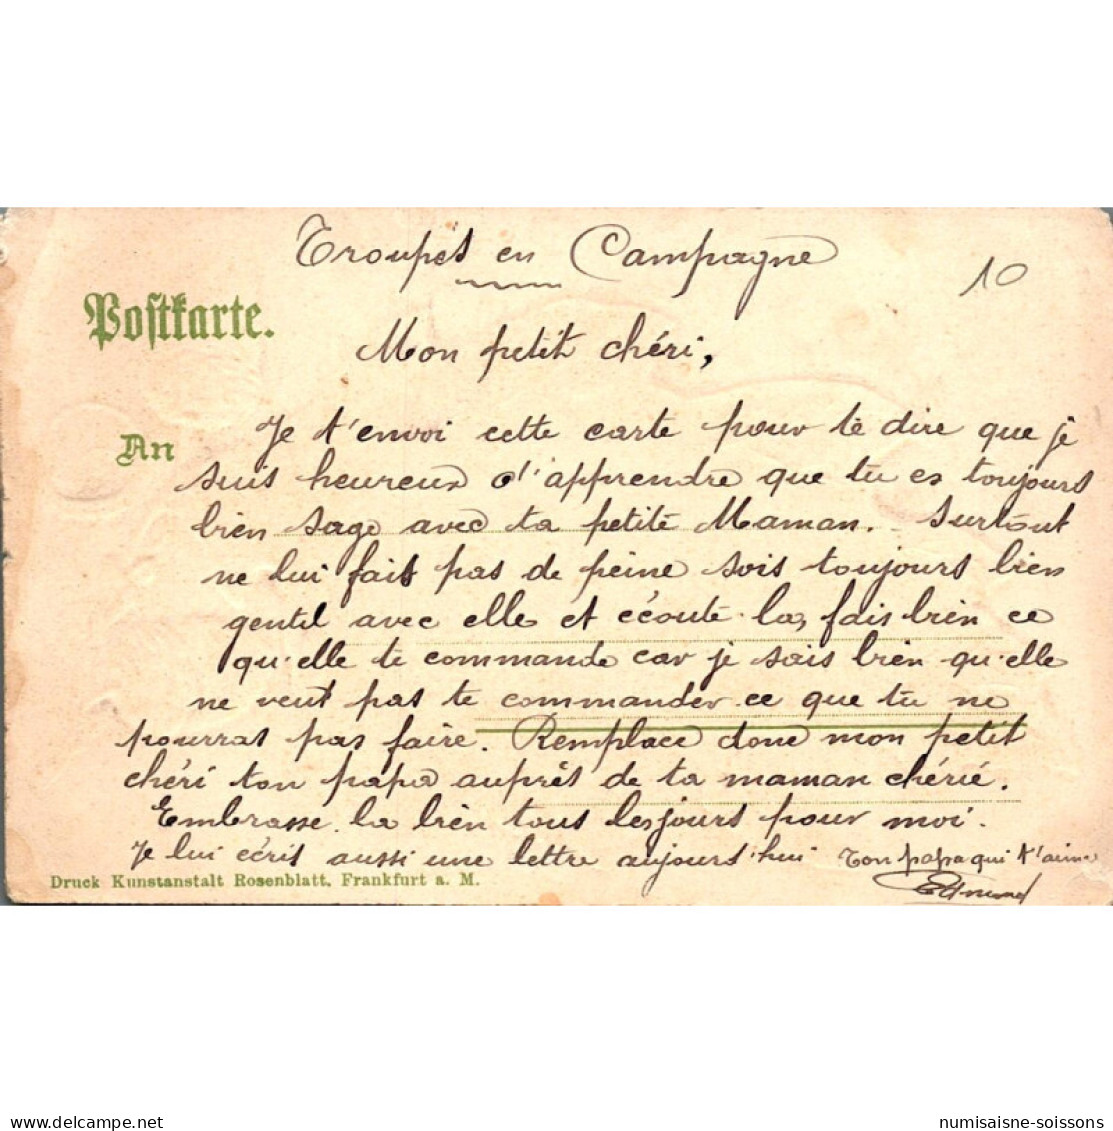 Troupes en Campagne
10
Postkarte.
Mon petit chéri,
An
Je t'envoi cette carte pour te dire que je
suis heureux d'apprendre que tu es toujours
bien sage avec ta petite Maman. Surtout
ne lui fait pas de peine sois toujours bien
gentil avec elle et écoute la, fais bien ce
qu'elle te commande car je sais bien qu'elle
ne veut pas te commander ce que tu ne
pourras pas faire. Remplace donc mon petit
chéri ton papa auprès de ta maman chérie.
Embrasse la bien tous les jours pour moi.
Je lui écris aussi une lettre aujourd'hui Ton papa qui t'aime
Druck Kunstanstalt Rosenblatt, Frankfurt a. M.
delcampe.net
numisaisne-soissons